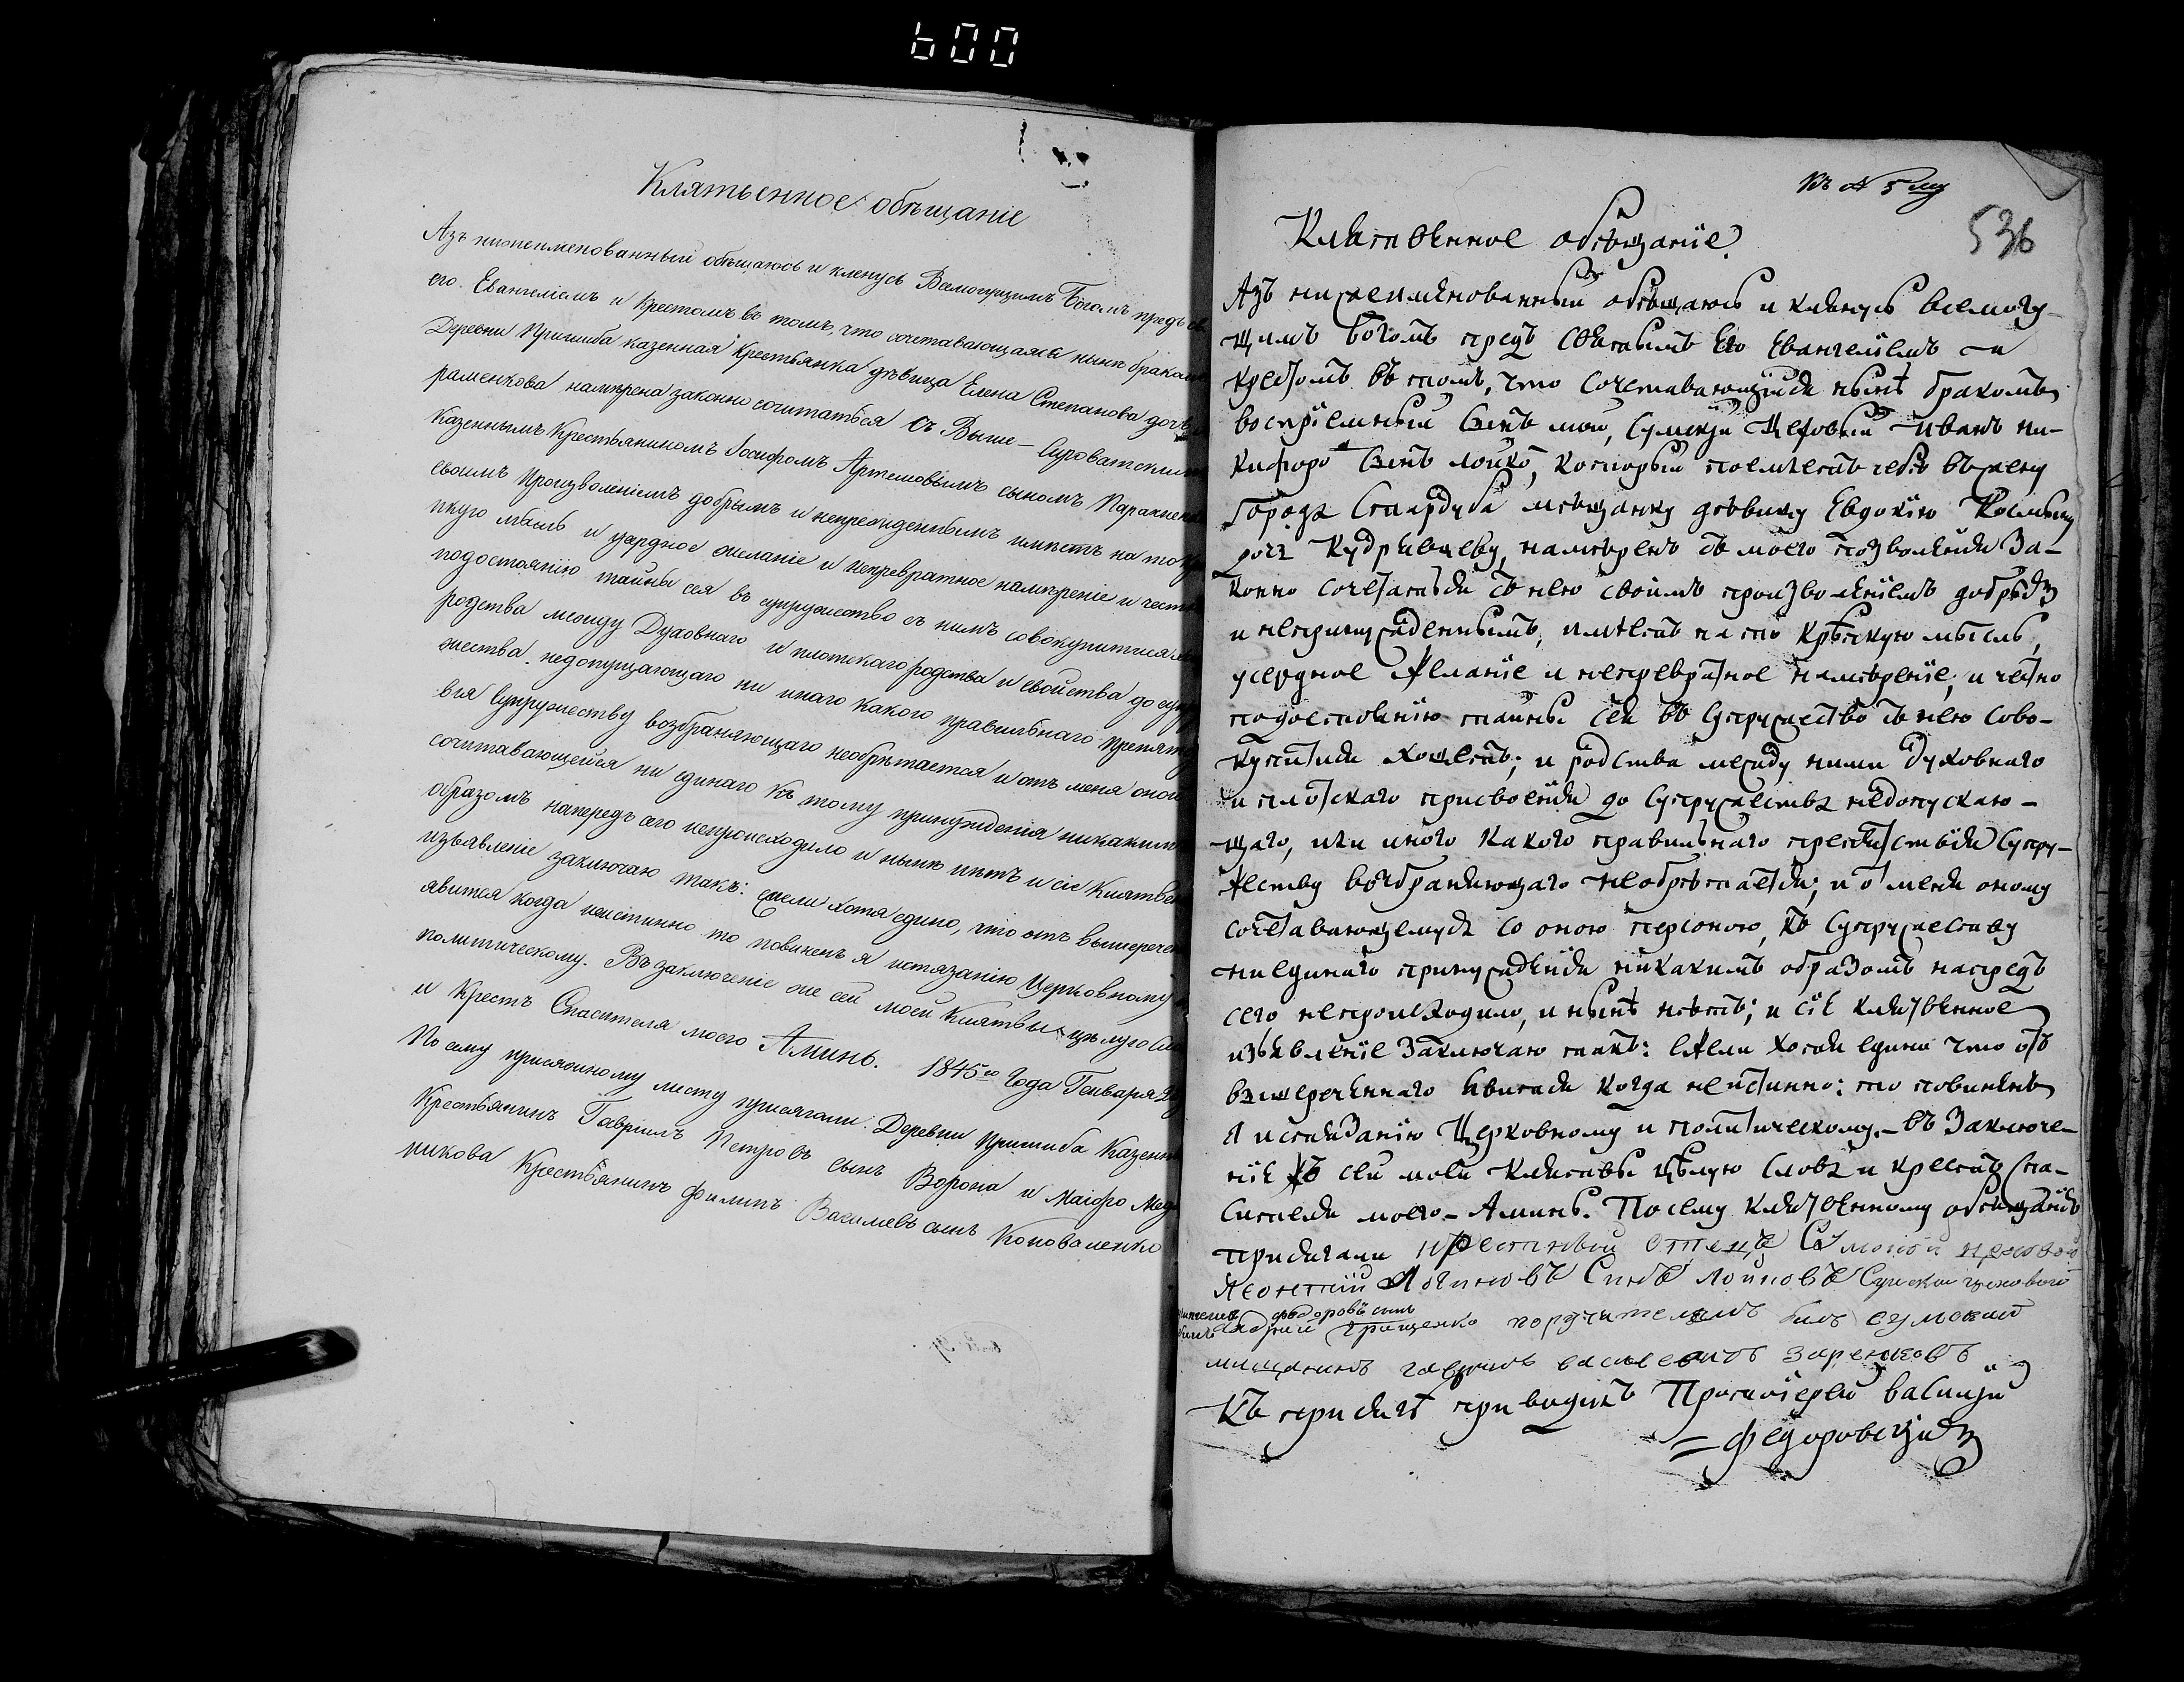 600
Клятвенное обѣщаніе
Азъ нижеименованный обѣщаюсь и кленусь Всемогущимъ Богомъ предъ
его Евангеліемъ и Крестомъ въ томъ, что сочетавающаяся нынѣ бракомъ
Деревни Пришиба казенная Крестьянка дѣвица Елена Степанова дочь
раменкова намѣрена законно сочитаться съ Выше-Сыроватскимъ
казеннымъ Крестьяниномъ Іосифомъ Артемовымъ сыномъ
своимъ произволеніемъ добрымъ и непрежденнымъ имѣетъ на то
пкую мысль и усердное желаніе и непревратное намѣреніе и честно
подостоянію тайны сея въ супружество съ нимъ совокупитися
родства между Духовнаго и плотскаго родства и свойства до супру
жества недопущающаго ни инаго какого правильнаго препятст
вія Супружеству возбраняющаго необрѣтается и отъ меня оной
сочитавающейся ни единаго къ тому принужденія никакимъ
образомъ напередъ сего непроисходило и нынѣ нѣтъ и сіе Клятвен
изъявленіе заключаю такъ: ежели хотя едино, что отъ вышеречен
явится когда неистинно то повиненъ я истязанію Церковному
политическому. Въ заключеніе же сей моей Клятвы цѣлую Сло
и Крестъ Спасителя моего Аминь. 1845го Года Генваря
По сему присяжному листу присягали: Деревни Пришиба Казенный
Крестьянинъ Гавріилъ Петровъ сынъ Ворона и
никова Крестьянинъ Филипъ Васильевъ сынъ Коноваленко
Къ № 5му
536
Клятвенное обѣщаніе
Азъ нижеименованный обѣщаюсь и клянусь всемогу-
щимъ Богомъ предъ святымъ Его Евангеліемъ и
крестомъ въ томъ, что сочетавающійся нынѣ бракомъ
воспріемный сынъ мой, Сумскій Цеховый Иванъ Ни-
кифоро сынъ Лойко, который поемлетъ себѣ въ жену
Города Стародуба мѣщанку дѣвицу Евдокію Космину
дочь Кудрявцеву, намѣренъ съ моего позволенія За-
конно сочетаться съ нею своимъ произволеніемъ добрымъ
и непринужденнымъ, имѣетъ на то крѣпкую мысль,
усердное желаніе и непревратное намѣреніе; и честно
подостоянію тайны сея въ Супружество съ нею Сово-
купитися хощетъ; и родства между ними духовнаго
и плотскаго присвоенія до Супружества недопускаю-
щаго, или иного какого правильнаго препятствія Супру-
жеству возбраняющаго необрѣтается; и о меня оному
сочетавающемуся со оною персоною, къ Супружеству
ниединаго принужденія никакимъ образомъ напредъ
сего непроисходило, и нынѣ нѣтъ; и сіе клятвенное
изъявленіе Заключаю такъ: ежели хотя едино что отъ
вышереченнаго явится когда неистинно: то повиненъ
я истязанію Церковному и политическому. въ Заключе-
ніе жъ сей моей клятвы цѣлую Слова и крестъ Спа-
сителя моего. Аминь. По сему клятвенному обѣщанію
присягали Отецъ
Леонтій Логиновъ Синъ Лойковъ Сумской цеховой
федоровъ сынъ
Грищенко поручителемъ былъ сумской
мищанинъ гаврилъ василевичъ заренковъ
Къ присягѣ приводилъ Протоіерей Василій
Федоровскій